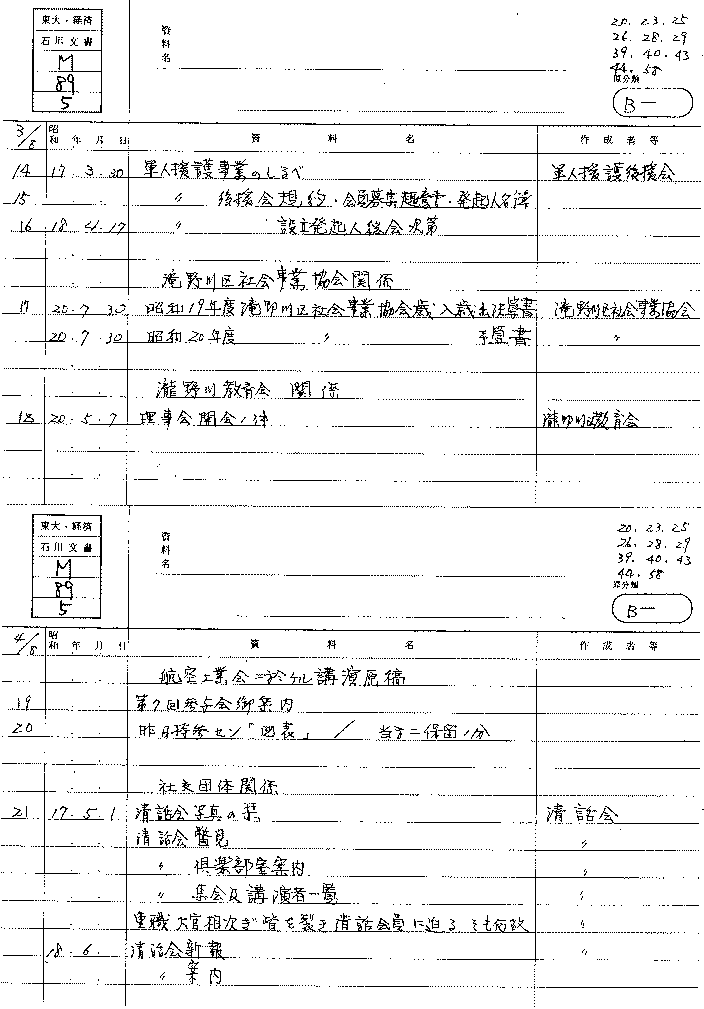 東大・経済
石川文書
M
89
5
資料名
20. 23. 25
26. 28. 29
39. 40. 43
44. 58
原分類
B－
3/8 昭和 年 月 日 資 料 名 作成者等
14 17. 3. 30 軍人援護事業のしるべ 軍人援護後援会
15 〃 後援会規約・会員募集趣意書・発起人名簿
16 18. 4. 17 〃 設立発起人総会次第
滝野川区社会事業協会関係
17 20. 7. 30 昭和19年度滝野川区社会事業協会歳入歳出決算書 滝野川区社会事業協会
20. 7. 30 昭和20年度 〃 予算書 〃
瀧野川教育会 関係
18 20. 5. 7 理事会開会ノ件 瀧野川教育会
東大・経済
石川文書
M
89
5
資料名
20. 23. 25
26. 28. 29
39. 40. 43
44. 58
原分類
B－
4/8 昭和 年 月 日 資 料 名 作成者等
航空工業会ニ於ケル講演原稿
19 第7回参与会御案内
20 昨日持参セン「図表」 ／ 当方ニ保留ノ分
社交団体関係
21 17. 5. 1 清話会写真の栞 清話会
清話会 〃
〃 倶楽部室案内 〃
〃 集会及講演者一覧 〃
重職大官相次ぎ 清話会員に迫る 〃
18. 6. 清話会新報 〃
〃 案内